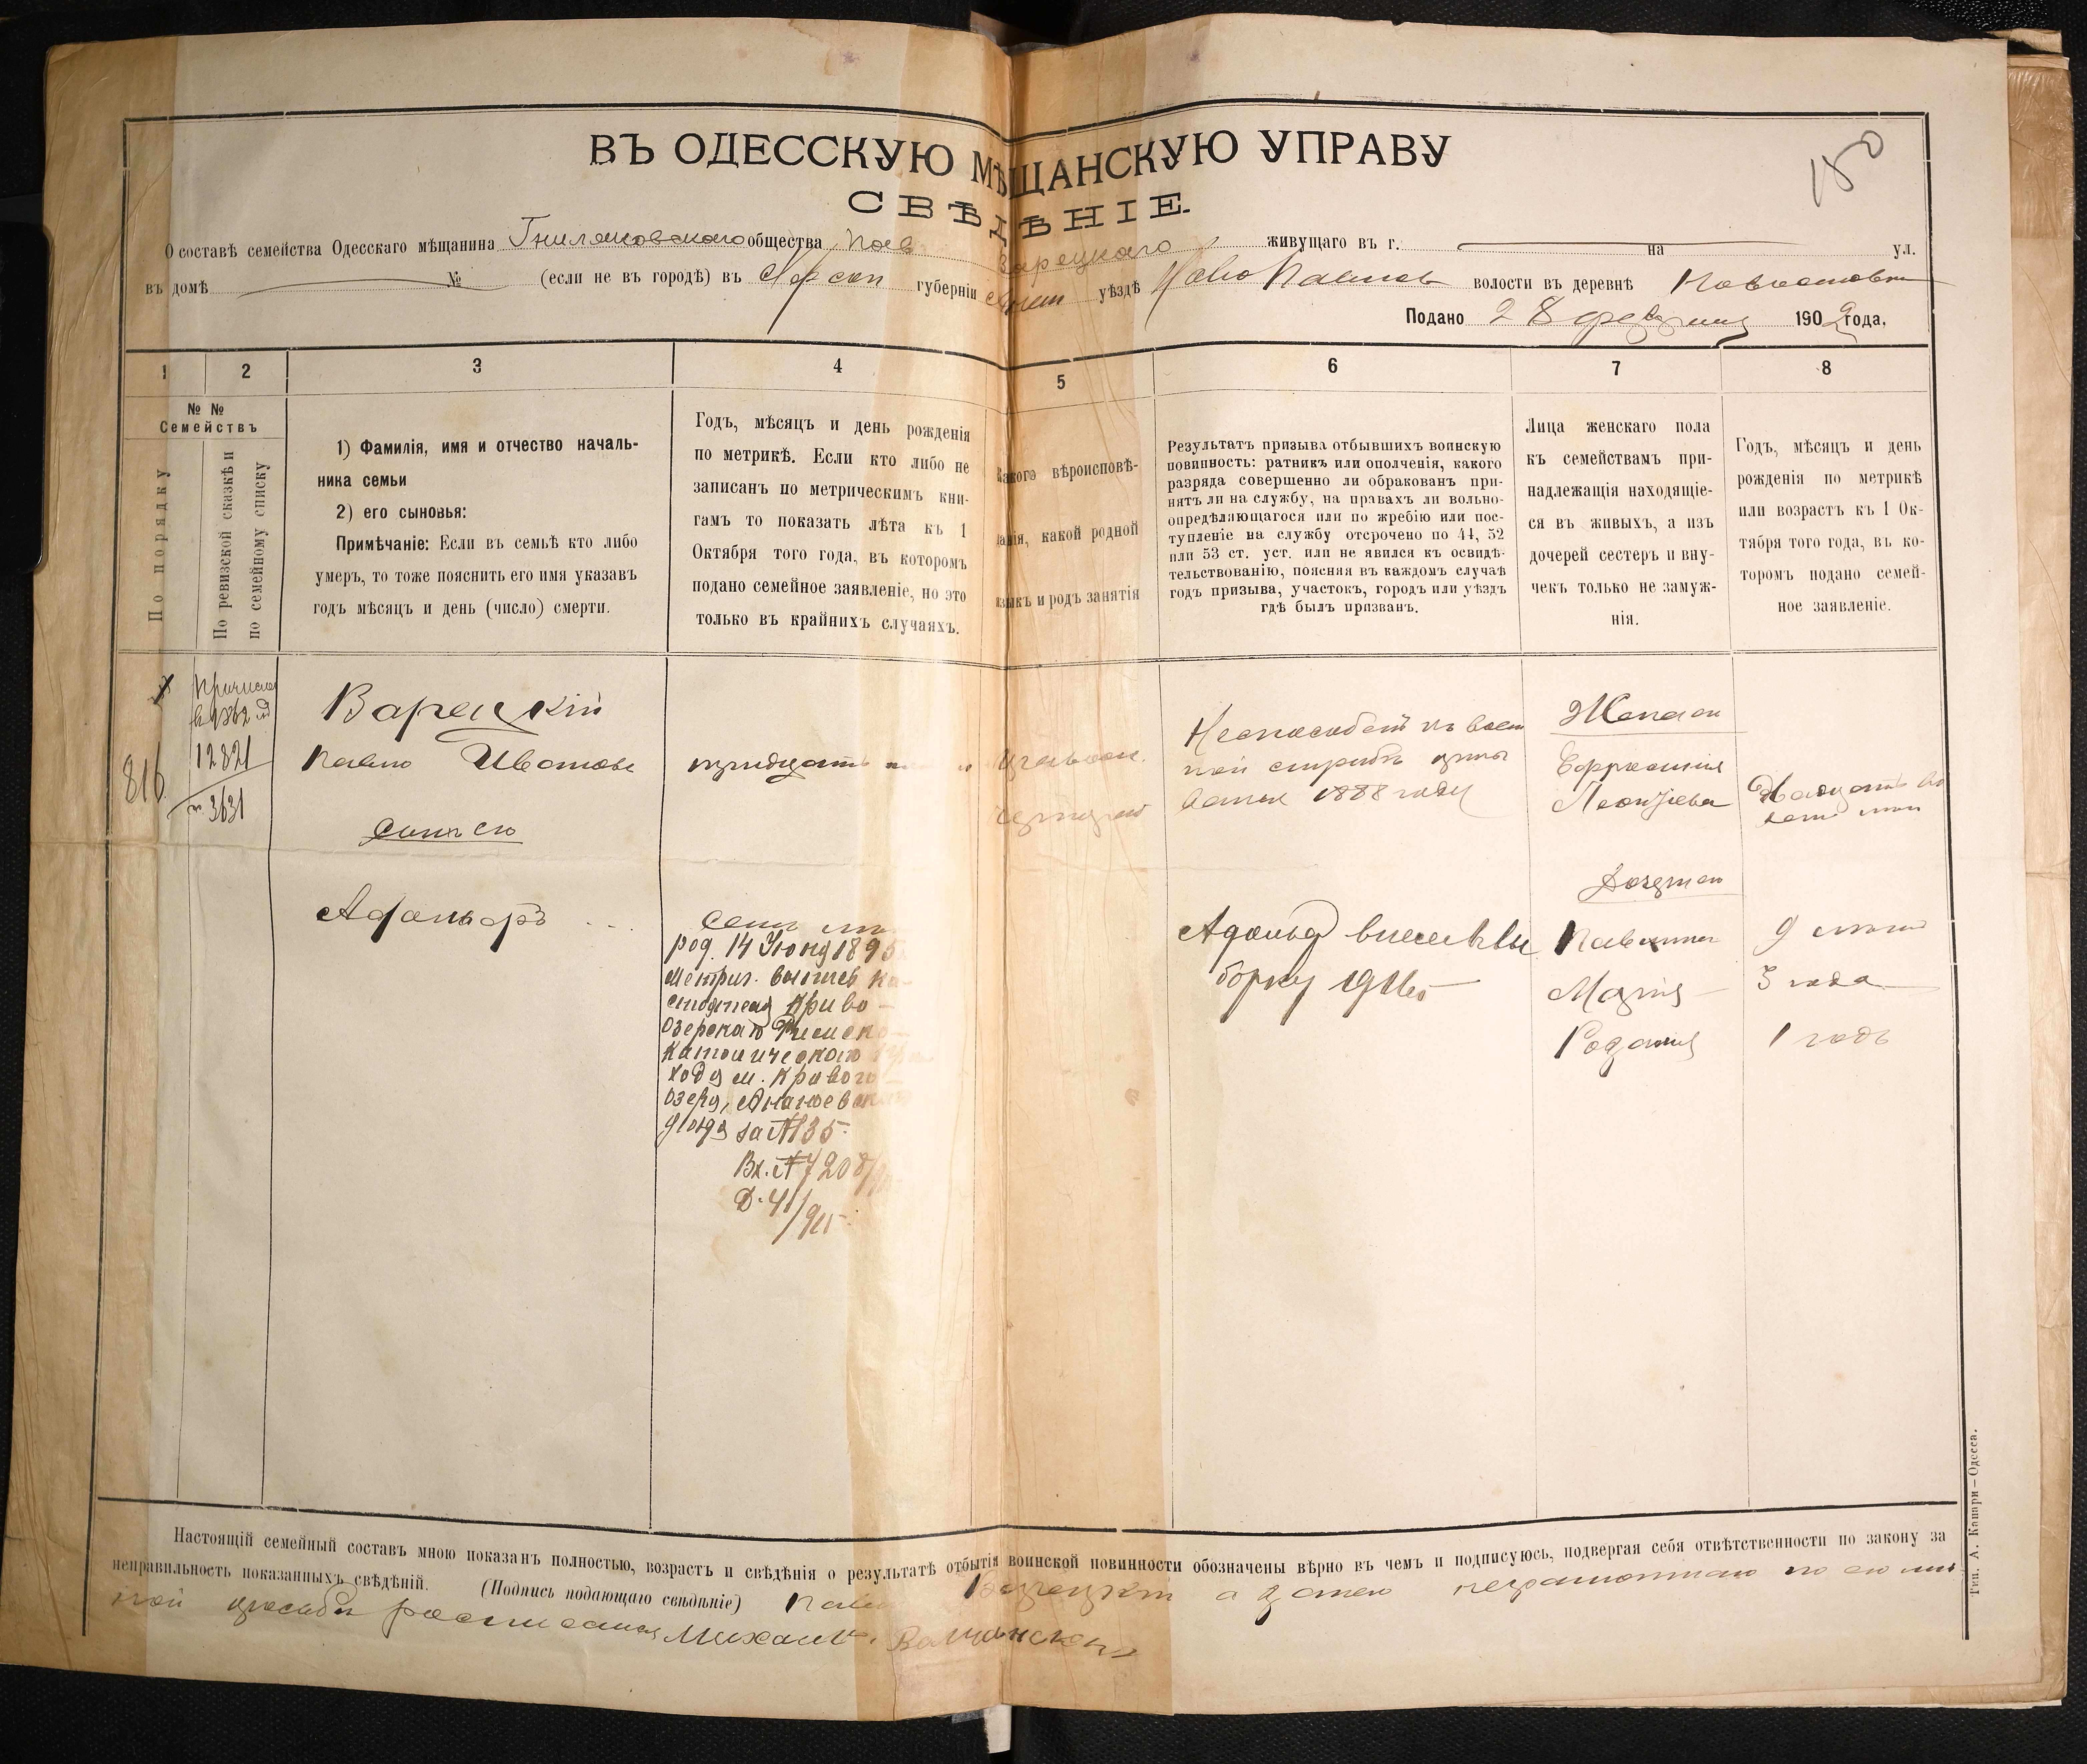 150
ВЪ ОДЕССКУЮ МѢЩАНСКУЮ УПРАВУ
СВѢДѢНІЕ.
О составѣ семейства Одесскаго мѣщанина Гниляковскаго общества Пав Варецкаго живущаго въ г. на ул.
въ домѣ № (если не въ городѣ) въ Херсон губерніи уѣздѣ Ново Павлов волости въ деревнѣ
Подано 28 февраля 1902 года.
1 2 3 4 5 6 7 8
№ №
Семействъ
По порядку
По ревизской сказкѣ и
по семейному списку
1) Фамилія, имя и отчество началь-
ника семьи
2) его сыновья:
Примѣчаніе: Если въ семьѣ кто либо
умеръ, то тоже пояснить его имя указавъ
годъ мѣсяцъ и день (число) смерти.
Годъ, мѣсяцъ и день рожденія
по метрикѣ. Если кто либо не
записанъ по метрическимъ кни-
гамъ то показать лѣта къ 1
Октября того года, въ которомъ
подано семейное заявленіе, но это
только въ крайнихъ случаяхъ.
Какого вѣроисповѣ-
данія, какой родной
языкъ и родъ занятія
Результатъ призыва отбывшихъ воинскую
повинность: ратникъ или ополченія, какого
разряда совершенно ли обракованъ при-
нятъ ли на службу, на правахъ ли вольно-
опредѣляющагося или по жребію или пос-
тупленіе на службу отсрочено по 44, 52
или 53 ст. уст. или не явился къ освидѣ-
тельствованію, поясняя въ каждомъ случаѣ
годъ призыва, участокъ, городъ или уѣздъ
гдѣ былъ призванъ.
Лица женскаго пола
къ семействамъ при-
надлежащія находящіе-
ся въ живыхъ, а изъ
дочерей сестеръ и вну-
чекъ только не замуж-
нія.
Годъ, мѣсяцъ и день
рожденія по метрикѣ
или возрастъ къ 1 Ок-
тября того года, въ ко-
торомъ подано семей-
ное заявленіе.
816
12821
3631
Варецкій
Павло Иванов
сынъ его
Адольфъ
тридцать
род. 14 Іюня 1895
метрич. выпись на-
стоятеля Криво-
Озерскаго Римско-
католическаго при-
хода м. Кривого
Озера, Ананьевскаго
уѣзда за №135.
Вх. №7208
Д. 41/915
Неспособенъ къ воен
ной службѣ
1888 году
Адольф внесенъ въ вы
борку 1916
Жена
Ефросинія
Леонтьева
Дочери
Павлина 9 лѣтъ
Марія 3 года
Розалія 1 годъ
Настоящій семейный составъ мною показанъ полностью, возрастъ и свѣдѣнія о результатѣ отбытія воинской повинности обозначены вѣрно въ чемъ и подписуюсь, подвергая себя отвѣтственности по закону за
неправильность показанныхъ свѣдѣній. (Подпись подающаго свѣдѣніе) Варецкій а за него неграмотнаго по его лич
ной просьбѣ росписался Михаилъ
Тип. А. Капари—Одесса.